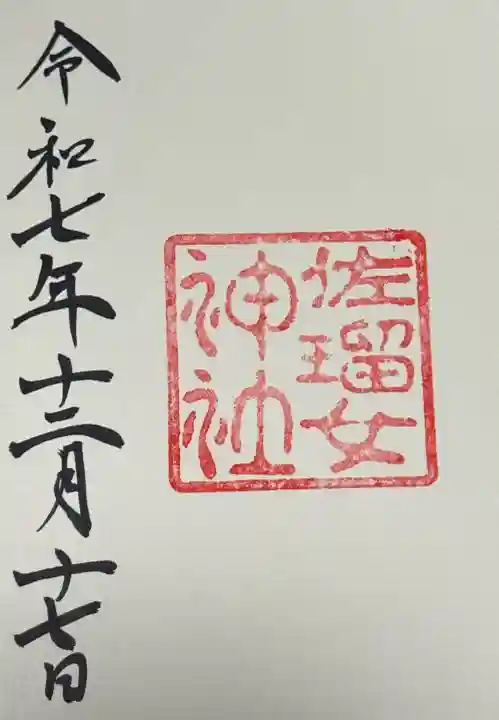 佐瑠女
神社
令和七年十二月十七日